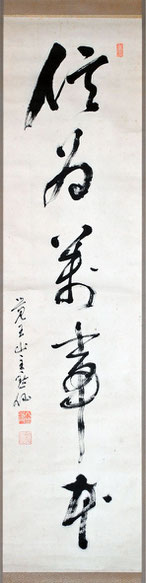 信為萬事本
覚王山主黙仙